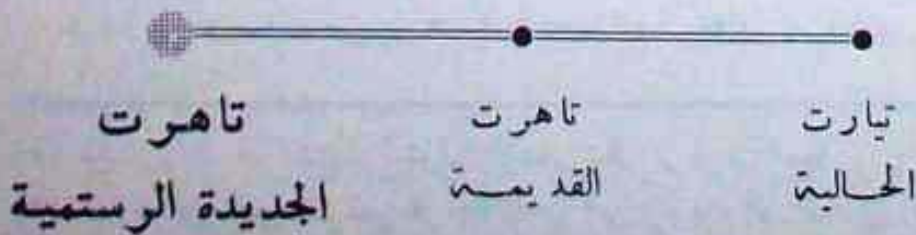 تيارت
الحالية
تاهرت
القديمة
تاهرت
الجديدة الرستمية